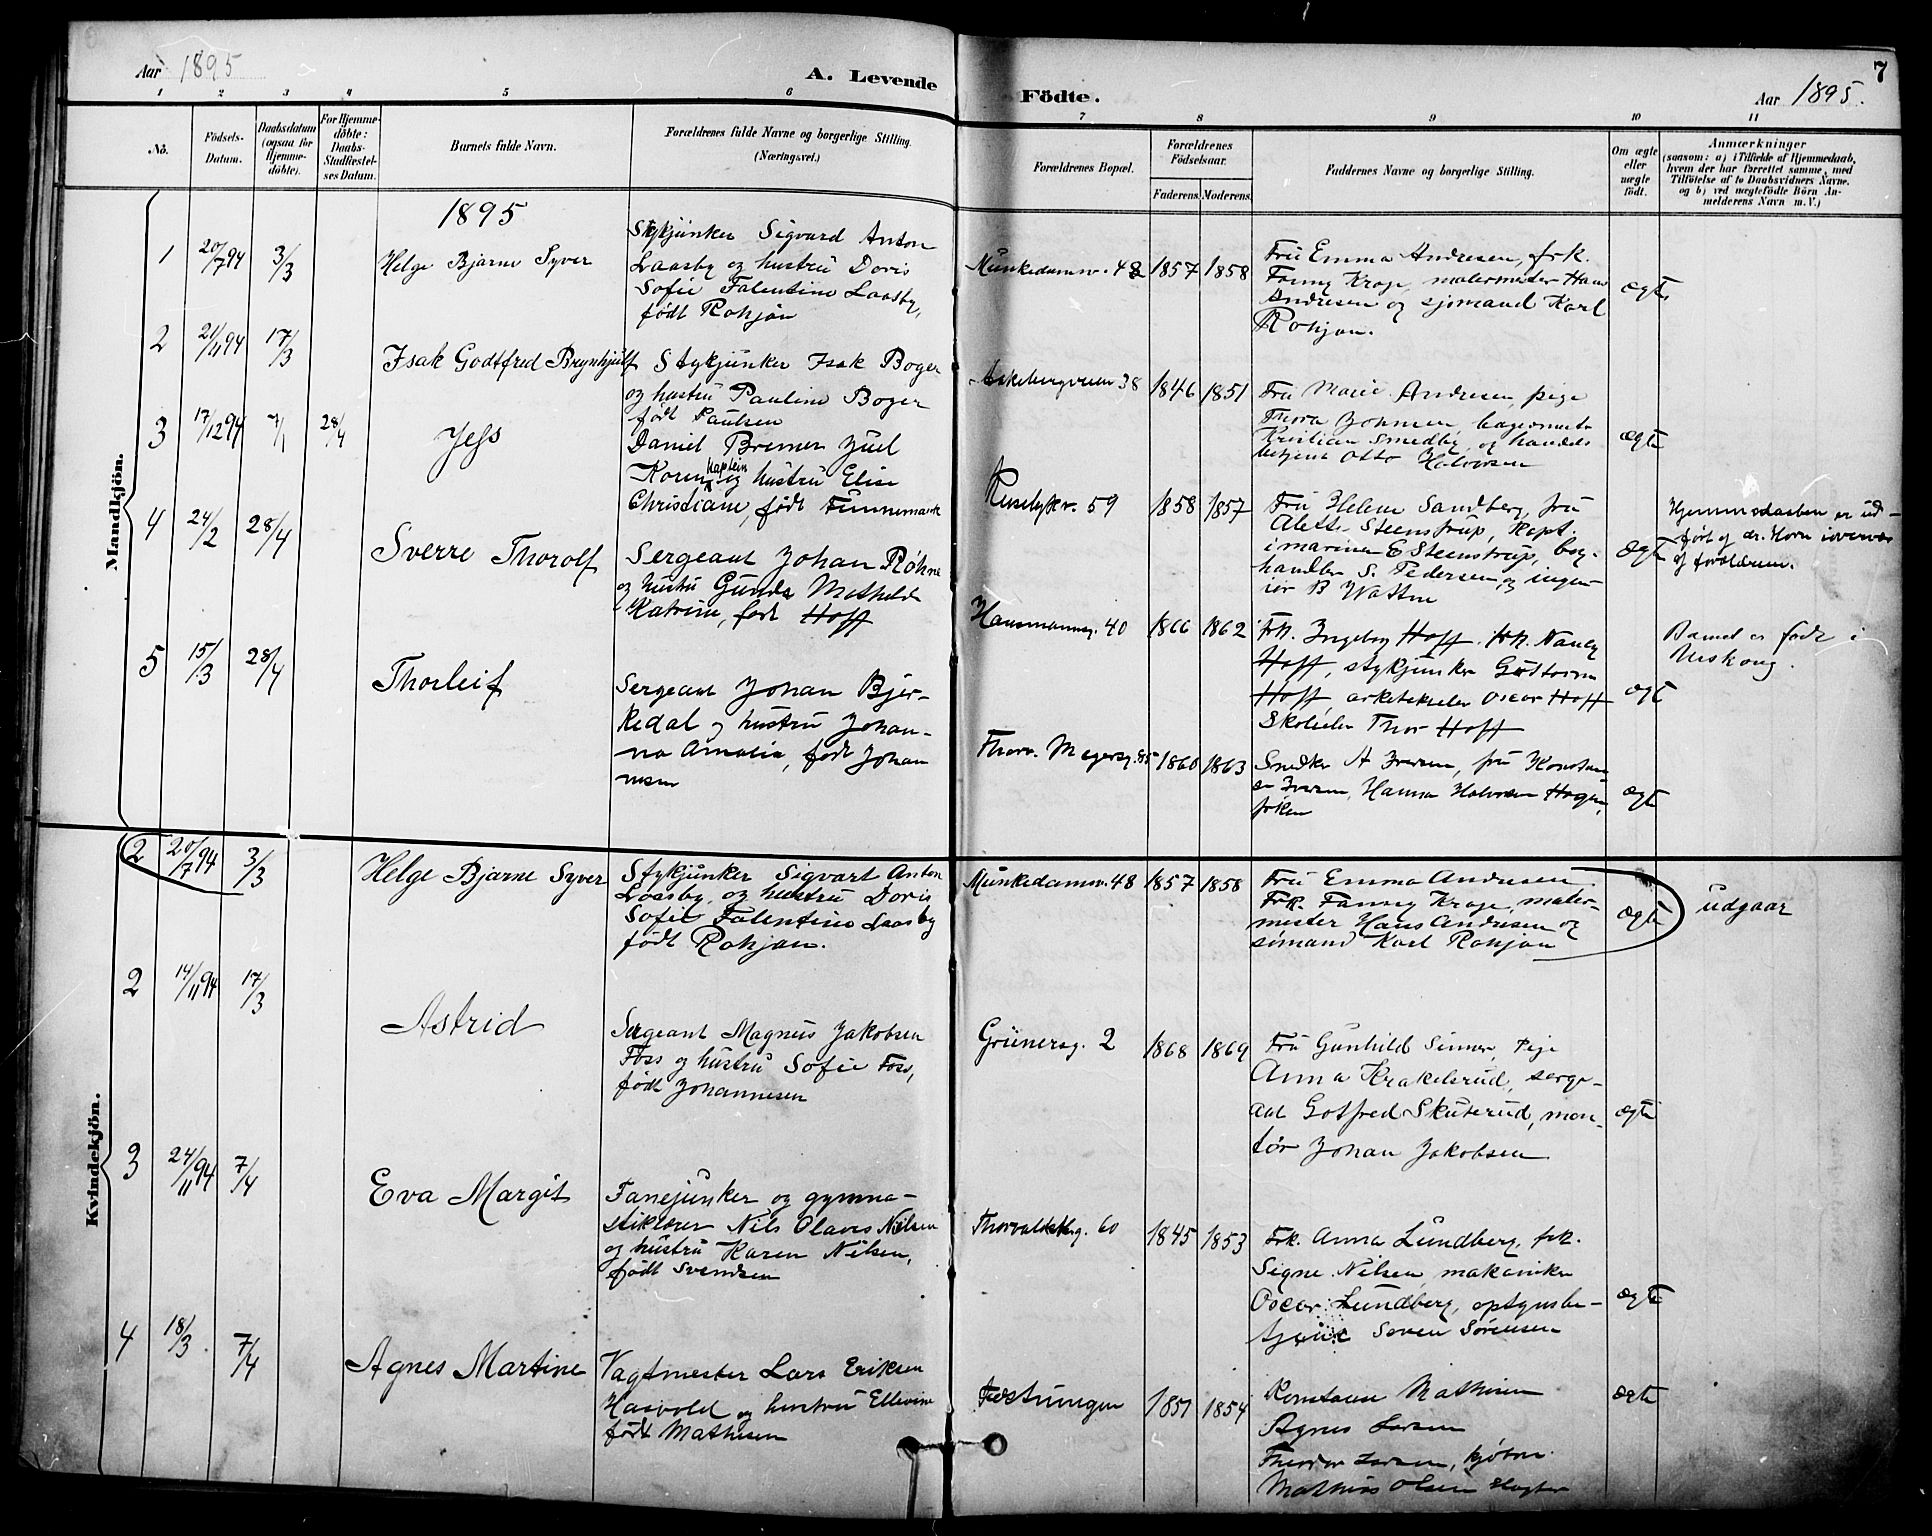 Aar 1895
A. Levende
Födte.
Aar 1895.
7
1 2 3 4 5 6 7 8 9 10 11
No.
Födsels-
Datum.
Daabsdatum
(ogsaa for
Hjemme-
döbte).
For Hjemme-
döbte:
Daabs-
Stadfæstel-
ses Datum.
Barnets fulde Navn.
Forældrenes fulde Navne og borgerlige Stilling.
(Næringsvei.)
Forældrenes Bopæl.
Forældrenes
Födselsaar.
Faderens. Moderens.
Faddernes Navne og borgerlige Stilling.
Om ægte
eller
uægte
födt.
Anmærkninger
(saasom: a) i Tilfælde af Hjemmedaab,
hvem der har forrettet samme, med
Tilföielse af to Daabsvidners Navne,
og b) ved uægtefödte Börn An-
melderens Navn m. V.)
Mandkjön.
1895
1
20/7 94
3/3
Helge Bjarne Syver
Stykjunker Sigvard Anton
Laasby og hustru Doris
Sofie Falentine Laasby,
født Rohjan
Munkedamsv. 48
1857
1858
Fru Emma Andresen, frk.
Fanny Krage, malermester Hans
Andresen og sjømand Karl
Rohjan.
ægte
2
21/11 94
17/3
Isak Godtfred Brynhjulf
Stykjunker Isak Boger
og hustru Pauline Boger
født Paulsen
Akebergveien 38
1846
1851
Fru Marie Andresen, pige
Thora Johnsen, bagermester
Kristian Smedby, og handels
betjent Otto Halvorsen
ægte
3
17/12 94
7/1
28/4
Jess
Daniel Bremer Juel
Koren, kaptein og hustru Elise
Christiane, født Finnemark
Ruselykv. 59
1858
1857
Fru Helene Sandberg, fru
Alette Steenstrup, Kapt.
i marinen E Steenstrup, bog-
handler S. Pedersen og ingeni-
iør B Watne
Ægte
Hjemmedaaben er ud-
ført af dr. Horn i overvær
af forældrene.
4
24/2
28/4
Sverre Thorolf
Sergeant Johan Røhne
og hustru Gunda Mathilde
Katrine, født Hoff
Hausmannsg. 40
1866
1862
Frk. Ingeborg Hoff. frk. Nancy
Hoff, stykjunker Guttorm
Hoff, arkitektelev Oscar Hoff
Skoleelev Thor Hoff
ægte
Barnet er født i
5
15/3
28/4
Thorleif
Sergeant Johan Bjer-
kedal og hustru Johan-
na Amalie, født Johan
nesen
Thorv. Meyersg. 85
1860
1863
Snedker A Iversen, fru Konstan-
se Iversen, Hanna Halvorsen Hagen,
frøken
ægte
Kvindekjön.
2
20/7 94
3/3
Helge Bjarne Syver
Stykjunker Sigvart Anton
Laasby, og hustru Doris
Sofie Falentine Laasby
født Rohjan.
Munkedamsv. 48
1857
1858
Fru Emma Andresen
Frk. Fanny Krage, maler-
mester Hans Andresen og
sømand Karl Rohjan
ægte
udgaar
2
14/11 94
17/3
Astrid
Sergeant Magnus Jakobsen
Foss og hustru Sofie Foss,
født Johannesen
Grünersg. 2
1868
1869
Fru Gunhild Simer, Pige
Anna Krakelsrud, serge-
ant Gotfred Skuterud, mon-
tør Johan Jakobsen
ægte
3
24/11 94
7/4
Eva Margit
Fanejunker og gymna-
stiklærer Nils Olaves Nilsen
og hustru Karen Nilsen,
født Svendsen
60
1845
1853
Frk. Anna Lundberg, frk.
Signe Nilsen, makaniker
Oscar Lundberg, opsynsbe-
tjent Søren Sørensen
ægte
4
18/3
7/4
Agnes Martine
Vagtmester Lars Eriksen
Hasvold og hustru Ellevine
født Mathisen
Fæstningen
1851
1854
Konstanse Mathisen
Agnes Larsen
Theodor Larsen, kjøbm.
Mathias Olsen slagter
ægte